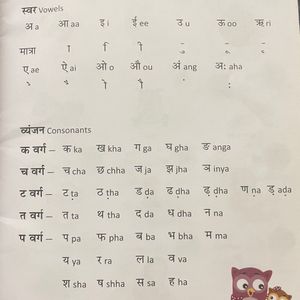 स्वर Vowels
अ a आ aa इ i ई ee उ u ऊ oo ऋ ri
मात्रा ा ि ी ु ू ृ
ए ae ऐ ai ओ o औ ou अं ang अः aha
े ै ो ौ ं ः
व्यंजन Consonants
क वर्ग – क ka ख kha ग ga घ gha ङ anga
च वर्ग – च cha छ chha ज ja झ jha ञ inya
ट वर्ग – ट ṭa ठ ṭha ड ḍa ढ ḍha ढ़ ḍha ण ṇa ड़ ada
त वर्ग – त ta थ tha द da ध dha न na
प वर्ग – प pa फ pha ब ba भ bha म ma
य ya र ra ल la व va
श sha ष shha स sa ह ha